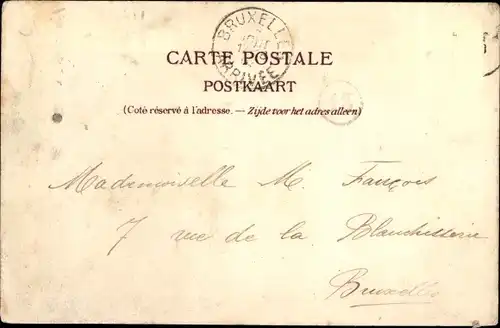 BRUXELLES
ARRIVÉE
CARTE POSTALE
POSTKAART
(Coté réservé à l'adresse. — Zijde voor het adres alleen)
Mademoiselle M. François
7 rue de la Blanchisserie
Bruxelles